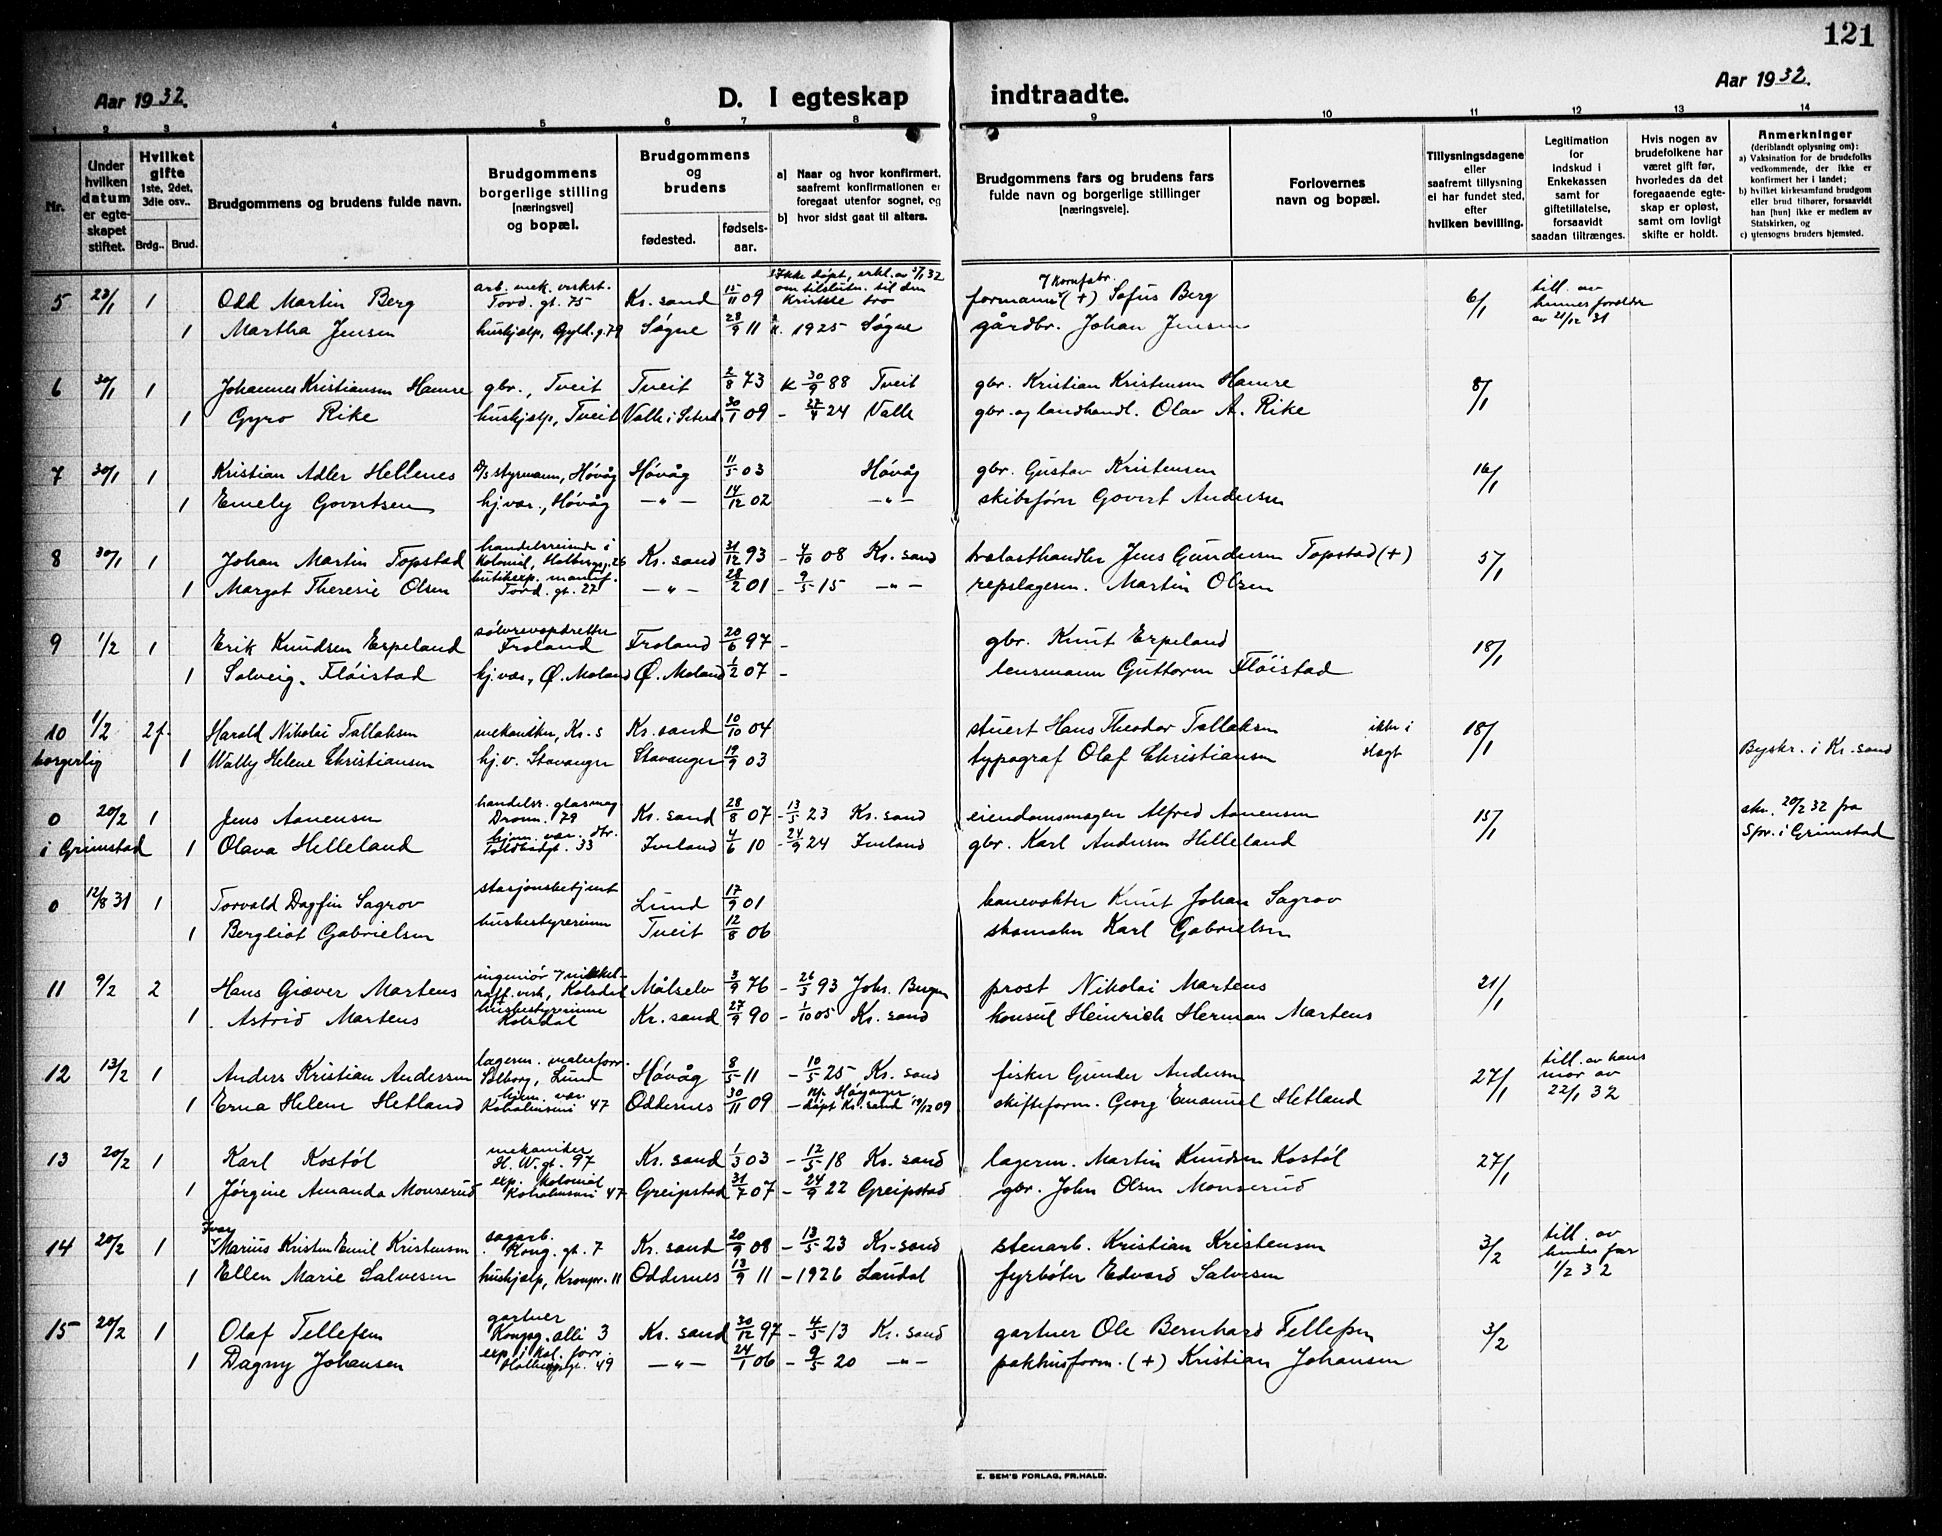 121
Aar 1932.
D. I egteskap indtraadte.
Aar 1932.
1 2 3 4 5 6 7 8 9 10 11 12 13 14
Nr.
Under hvilken datum er egteskapet stiftet.
Hvilket gifte 1ste, 2det, 3die osv..
Brdg..
Brud.
Brudgommens og brudens fulde navn.
Brudgommens borgerlige stilling [næringsvei] og bopæl.
Brudgommens og brudens
fødested.
fødsels-aar.
a) Naar og hvor konfirmert, saafremt konfirmationen er foregaat utenfor sognet, og
b) hvor sidst gaat til alters.
Brudgommens fars og brudens fars fulde navn og borgerlige stillinger [næringsveie].
Forlovernes navn og bopæl.
Tillysningsdagene eller saafremt tillysning ei har fundet sted, efter hvilken bevilling.
Legitimation for indskud i Enkekassen samt for giftetillatelse, forsaavidt saadan tiltrænges.
Hvis nogen av brudefolkene har været gift før, hvorledes da det foregaaende egteskap er opløst, samt om lovligt skifte er holdt.
Anmerkninger (deriblandt oplysning om):
a) Vaksination for de brudefolks vedkommende, der ikke er konfirmert her i landet;
b) hvilket kirkesamfund brudgom eller brud tilhører, forsaavidt han [hun] ikke er medlem av Statskirken, og
c) utensogns bruders hjemsted.
5 23/1 1 Odd Martin Berg arb. mek. verkst. Tord. gt. 75 Kr. sand 15/11 09 Ikke døpt, erkl. av 7/1 32 om tilslutn. til den kristne tro formann i Kornfabr. (+) Sofus Berg 6/1 till. av hennes forelder av 21/12 31
1 Martha Jensen hushjelp, Gyld. g. 79 Søgne 28/9 11 1925 Søgne gårdbr. Johan Jensen
6 30/1 1 Johannes Kristiansen Hamre gbr., Tveit Tveit 2/8 73 K 30/9 88 Tveit gbr. Kristian Kristensen Hamre 8/1
1 Gyro Rike hushjelp, Tveit Valle i Seterd. 30/1 09 - 27/4 24 Valle gbr. og landhandl. Olav A. Rike
7 30/1 1 Kristian Adler Hellenes D/S styrmann, Høvåg Høvåg 11/5 03 Høvåg gbr. Gustav Kristensen 16/1
1 Emely Govertsen hj. vær., Høvåg - " - 14/12 02 - " - skibsfører Govert Andersen
8 30/1 1 Johan Martin Topstad handelsreisende i Kolonial, Holbergsg. 26 Kr. sand 31/12 93 - 4/10 08 Kr. sand trælasthandler Jens Gundersen Topstad (+) 5/1
1 Margot Theresie Olsen butikseksp. manuf. Tord. gt. 27 - " - 28/2 01 - 9/5 15 - " - repslagerm. Martin Olsen
9 1/2 1 Erik Knudsen Erpeland sølvrevopdretter Froland Froland 20/6 97 - gbr. Knut Erpeland 18/1
1 Solveig Fløistad hj. vær, Ø. Moland Ø. Moland 1/2 07 - lensmann Guttorm Fløistad
10 1/2 2 f. Harald Nikolai Tallaksen mekaniker, Kr.-s Kr. sand 10/10 04 stuert Hans Theodor Tallaksen ikke i slegt 18/1
borgerlig 1 Wally Helene Christiansen hj. v. Stavanger Stavanger 19/9 03 typograf Olaf Christiansen Byskr. i Kr.-sand
0 20/2 1 Jens Aanensen handelsr. glasmag. Dronn. 79 Kr. sand 28/8 07 - 13/5 23 Kr. sand eiendomsmegler Alfred Aanensen 15/1 skr. 20/2 32 fra
i Grimstad 1 Olava Helleland hjem. vær. dtr. Toldbodgt. 33 Iveland 4/6 10 - 24/9 24 Iveland gbr. Karl Andersen Helleland Spr. i Grimstad
0 12/8 31 1 Torvald Dagfin Sagrov stasjonsbetjent Lund 17/9 01 banevokter Knut Johan Sagrov
1 Bergliot Gabrielsen husbestyrerinne Tveit 12/8 06 skomaker Karl Gabrielsen
11 9/2 2 Hans Giæver Martens ingeniør v/ nikkelraff. verk, Kolsdal Målselv 3/9 76 - 26/3 93 Joh. Bergen prost Nikolai Martens 21/1
1 Astrid Martens husbestyrerinne Kolsdal Kr. sand 27/9 90 - 1/10 05 Kr. sand konsul Heinrich Herman Martens
12 13/2 1 Anders Kristian Andersen lagerm. malerforr. Solborg, Lund Høvåg 8/5 11 - 10/5 25 Kr. sand fisker Gunder Andersen 27/1 till. av hans mor av 22/1 32
1 Erna Helene Hetland hjem. vær. Kobolmsvei 47 Oddernes 30/11 09 - døpt Kr. sand 19/12 09 skifteform. Georg Emanuel Hetland
13 20/2 1 Karl Kostøl mekaniker H. W. gt. 97 Kr. sand 1/3 03 - 12/5 18 Kr. sand lagerm. Martin Knudsen Kostøl 27/1
1 Jørgine Amanda Monserud exp. kolonial Kobolmsvei 47 Greipstad 31/7 07 - 24/9 22 Greipstad gbr. John Olsen Monserud
14 20/2 1 Ivar Marius Kristen Emil Kristensen sagarb. Kong. gt. 7 Kr. sand 20/9 08 - 13/5 23 Kr.-sand stenarb. Kristian Kristensen 3/2 till. av hendes far 1/2 32
1 Ellen Marie Salvesen hushjelp, Kronpr. 11 Oddernes 13/9 11 - 1926 Laudal fyrbøter Edvard Salvesen
15 20/2 1 Olaf Tellefsen gartner Kongsg. alli 3 Kr. sand 30/12 97 - 4/5 13 Kr. sand gartner Ole Bernhard Tellefsen 3/2
1 Dagny Johansen exp. i kol. forr. Holbergsgt. 49 - " - 24/1 06 - 9/5 20 - " - pakhusform. (+) Kristian Johansen
E. SEM'S FORLAG, FR.HALD.